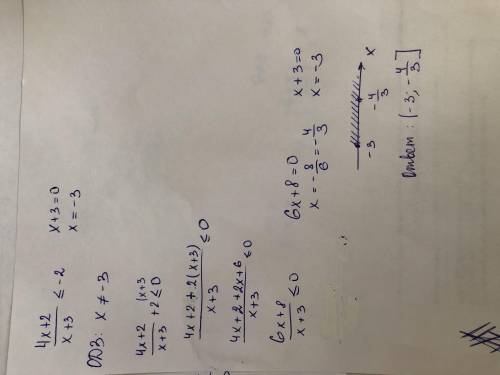 4x+2/x+3 ≤ -2 x+3=0
x=-3
ОДЗ: x ≠ -3
4x+2/x+3 + 2 ≤ 0 (x+3
4x+2+2(x+3)/x+3 ≤ 0
4x+2+2x+6/x+3 ≤ 0
6x+8/x+3 ≤ 0
6x+8=0 x+3=0
x=-8/6=-4/3 x=-3
-3 -4/3 x
Ответ: (-3; -4/3]